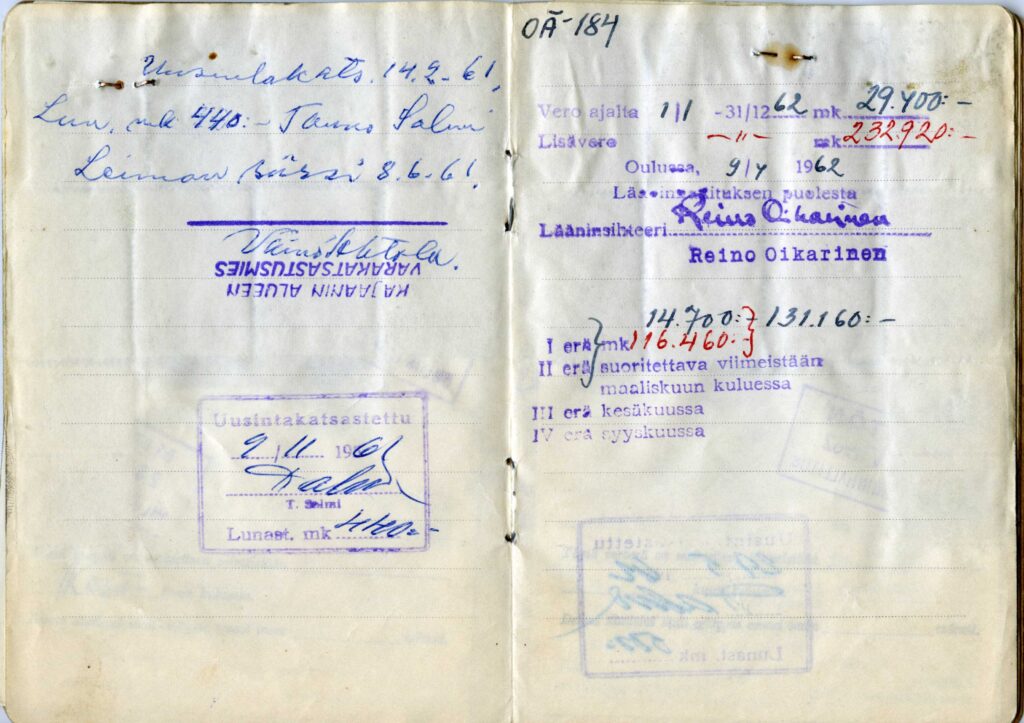 Uusintakats. 14.2-61.
Lun. mk 440:- Tauno Salmi
Leiman 8.6-61.
Väinö Ahtola.
KAJAANIN ALUEEN
VARAKATSASTUSMIES
Uusintakatsastettu
2/11 1961
T. Salmi
Lunast. mk 440:-
OÄ-184
Vero ajalta 1/1 -31/12 62 mk 29.400:-
Lisävero -"- mk 232920:-
Oulussa, 9/4 1962
Lääninhallituksen puolesta
Reino Oikarinen
Lääninsihteeri
Reino Oikarinen
14.700:- 131.160:-
I erä mk 116.460:-
II erä suoritettava viimeistään
maaliskuun kuluessa
III erä kesäkuussa
IV erä syyskuussa
Lunast. mk